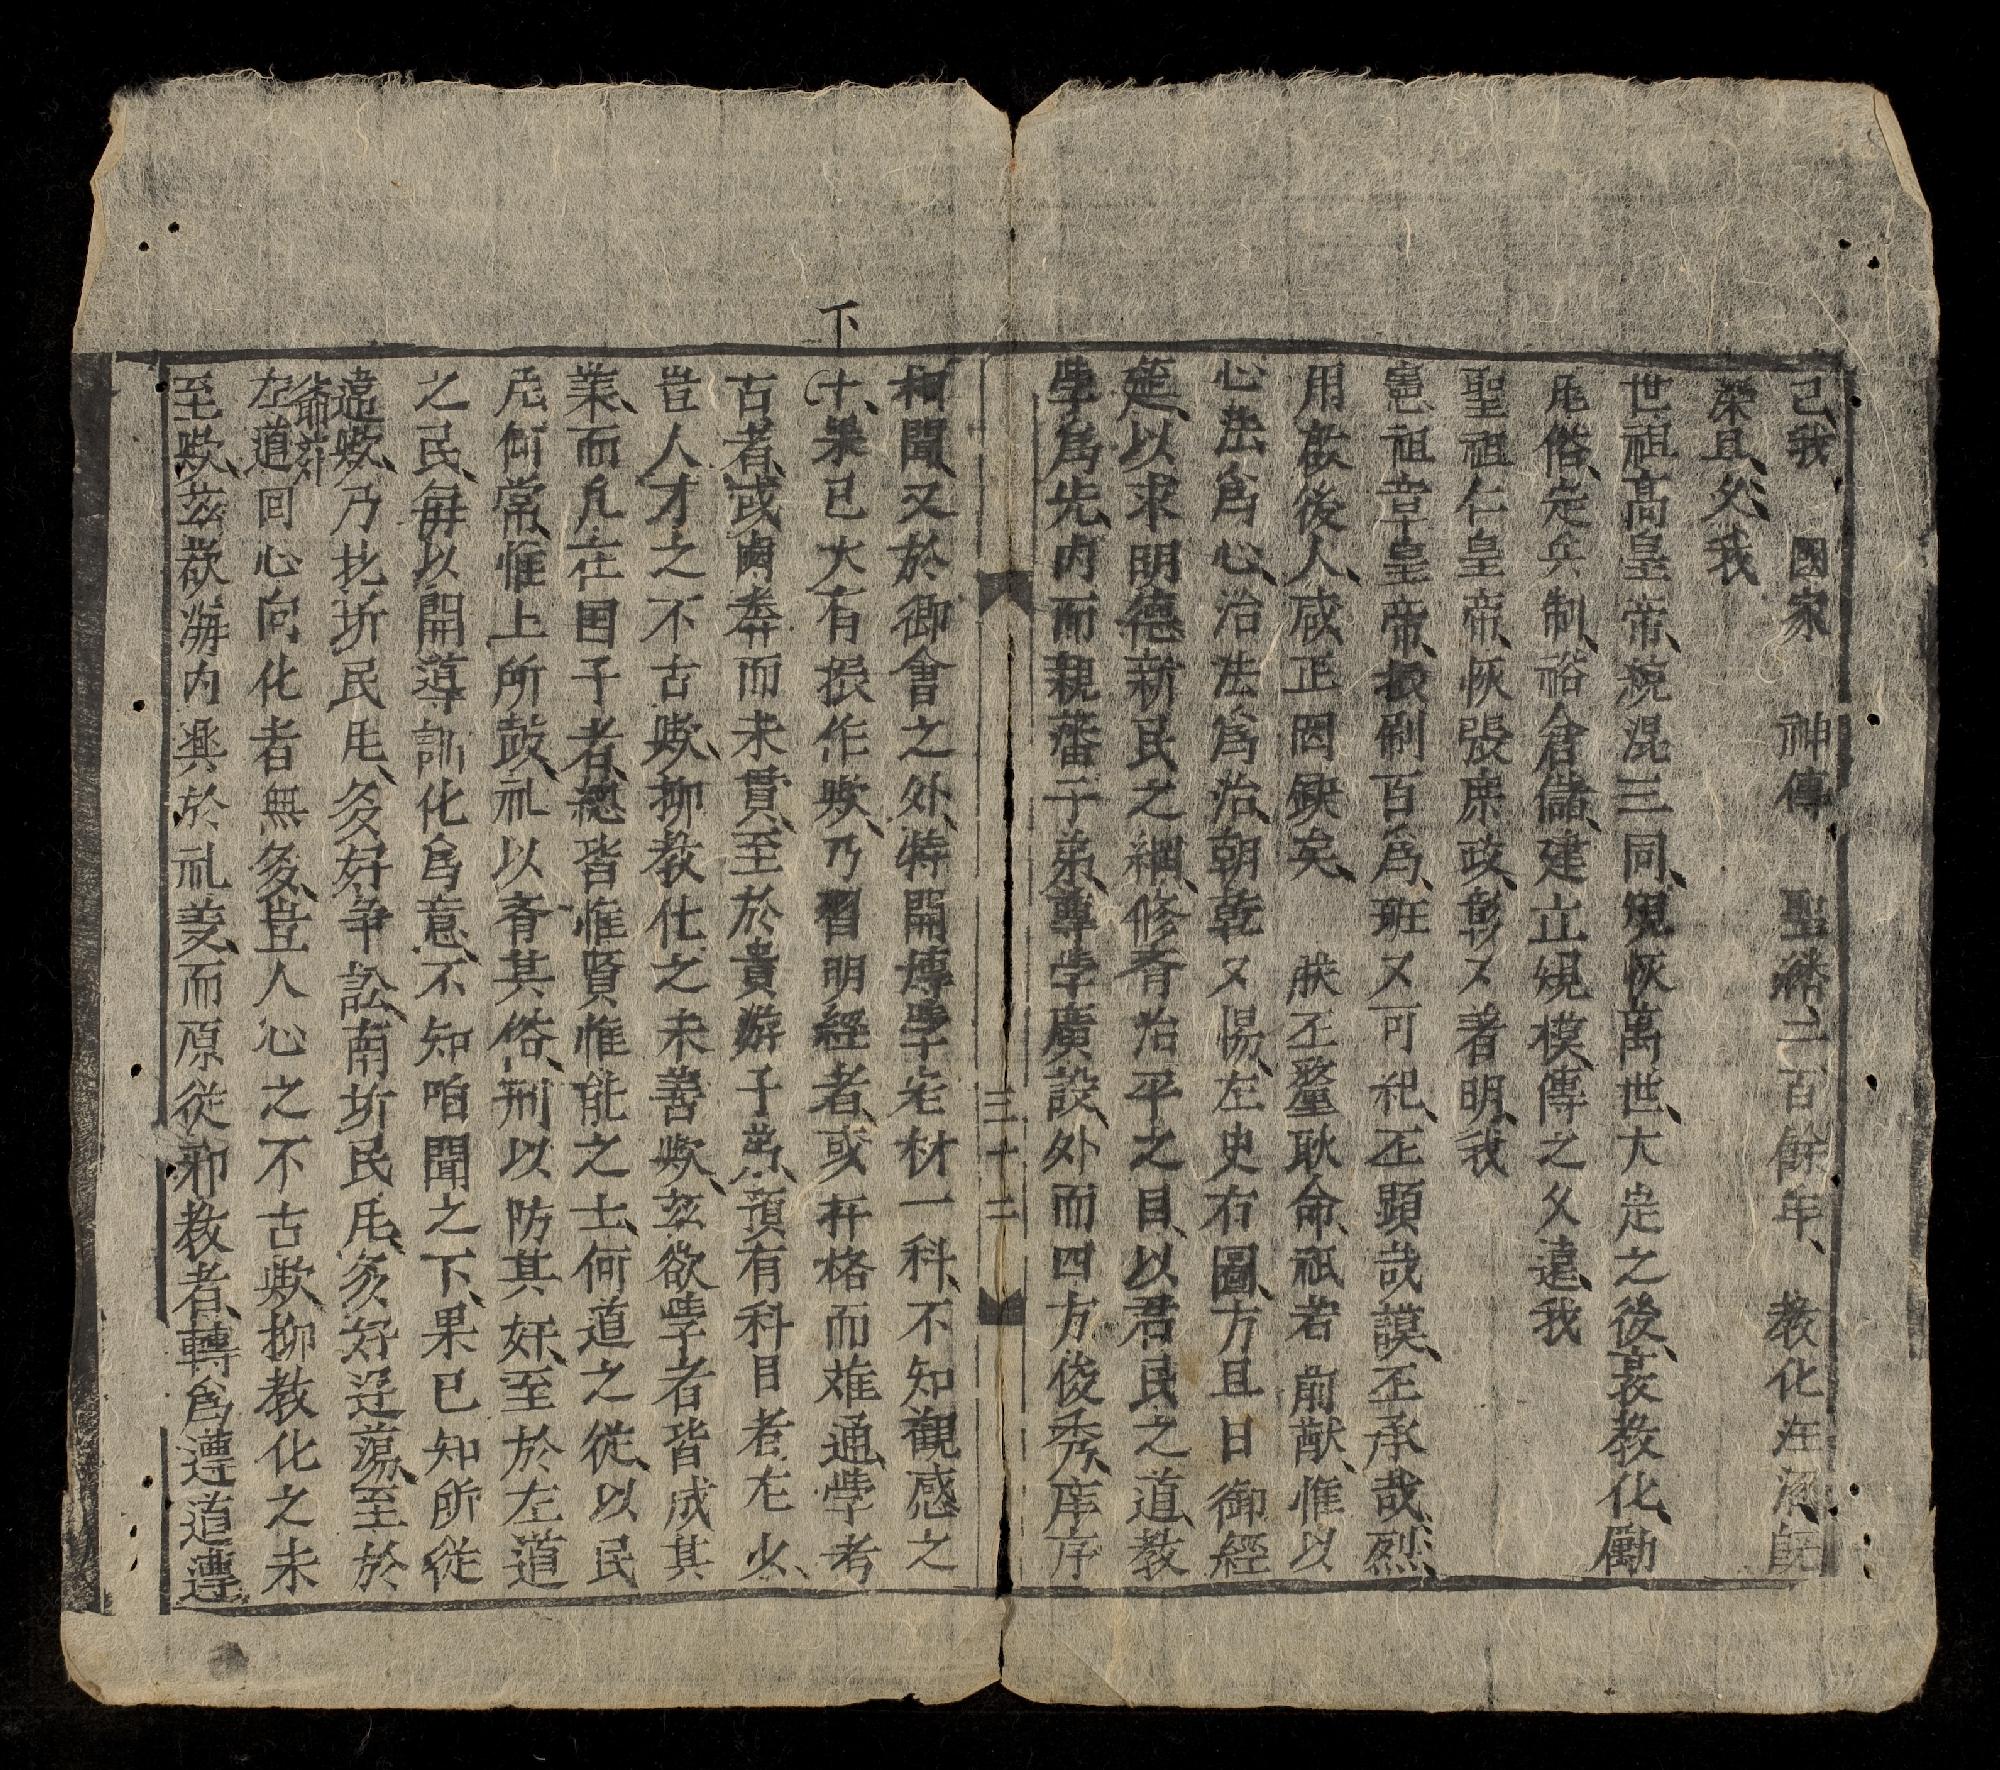 已我 國家 神傳 聖繼二百餘年、教化注渍旣
深且久、我
世祖高皇帝、統混三同、規恢萬世、大定之後、衰教化、勵
凮俗、定兵制、裕倉儲、建立規模、傳之久遠、我
聖祖仁皇帝、恢張庶政、彰又著明、我
憲祖章皇帝、損制百爲、班又可祀、丕顯哉謨、丕承哉烈、
用啟後人、咸正罔缺矣 朕丕釐耿命、祇若前猷、惟以
心法爲心、治法爲治、朝乾又惕、左史右圖、方且日御經
筵、以求明德新民之綱、修齊治平之目、以君民之道、教
學爲先、內而親藩子弟、尊學廣設、外而四方俊秀、庠序
三十二
相聞、又於鄉會之外、特開博學宏材一科、不知觀感之
下
十、果已大有振作歟、乃習明經者、或杆格而难通、學考
古者、或鹵莽而未貫、至於貴游子弟、預有科目者尤少、
豈人才之不古歟、抑教化之未善歟、玆欲学者皆成其
業、而凡在国子者、總皆惟賢惟能之士、何道之從、以民
凮何常、惟上所鼓、礼以齊其俗、刑以防其奸、至於左道
之民、每以開導訓化爲意、不知咱聞之下、果已知所從
違歟、乃北圻民凮、多好争訟、南圻民凮、多好逕蕩、至於
爺蘇
左道回心向化者無多、豈人心之不古歟、抑教化之未
至歟、玆欲海内興於礼義、而原從邪教者、轉爲遵道遵